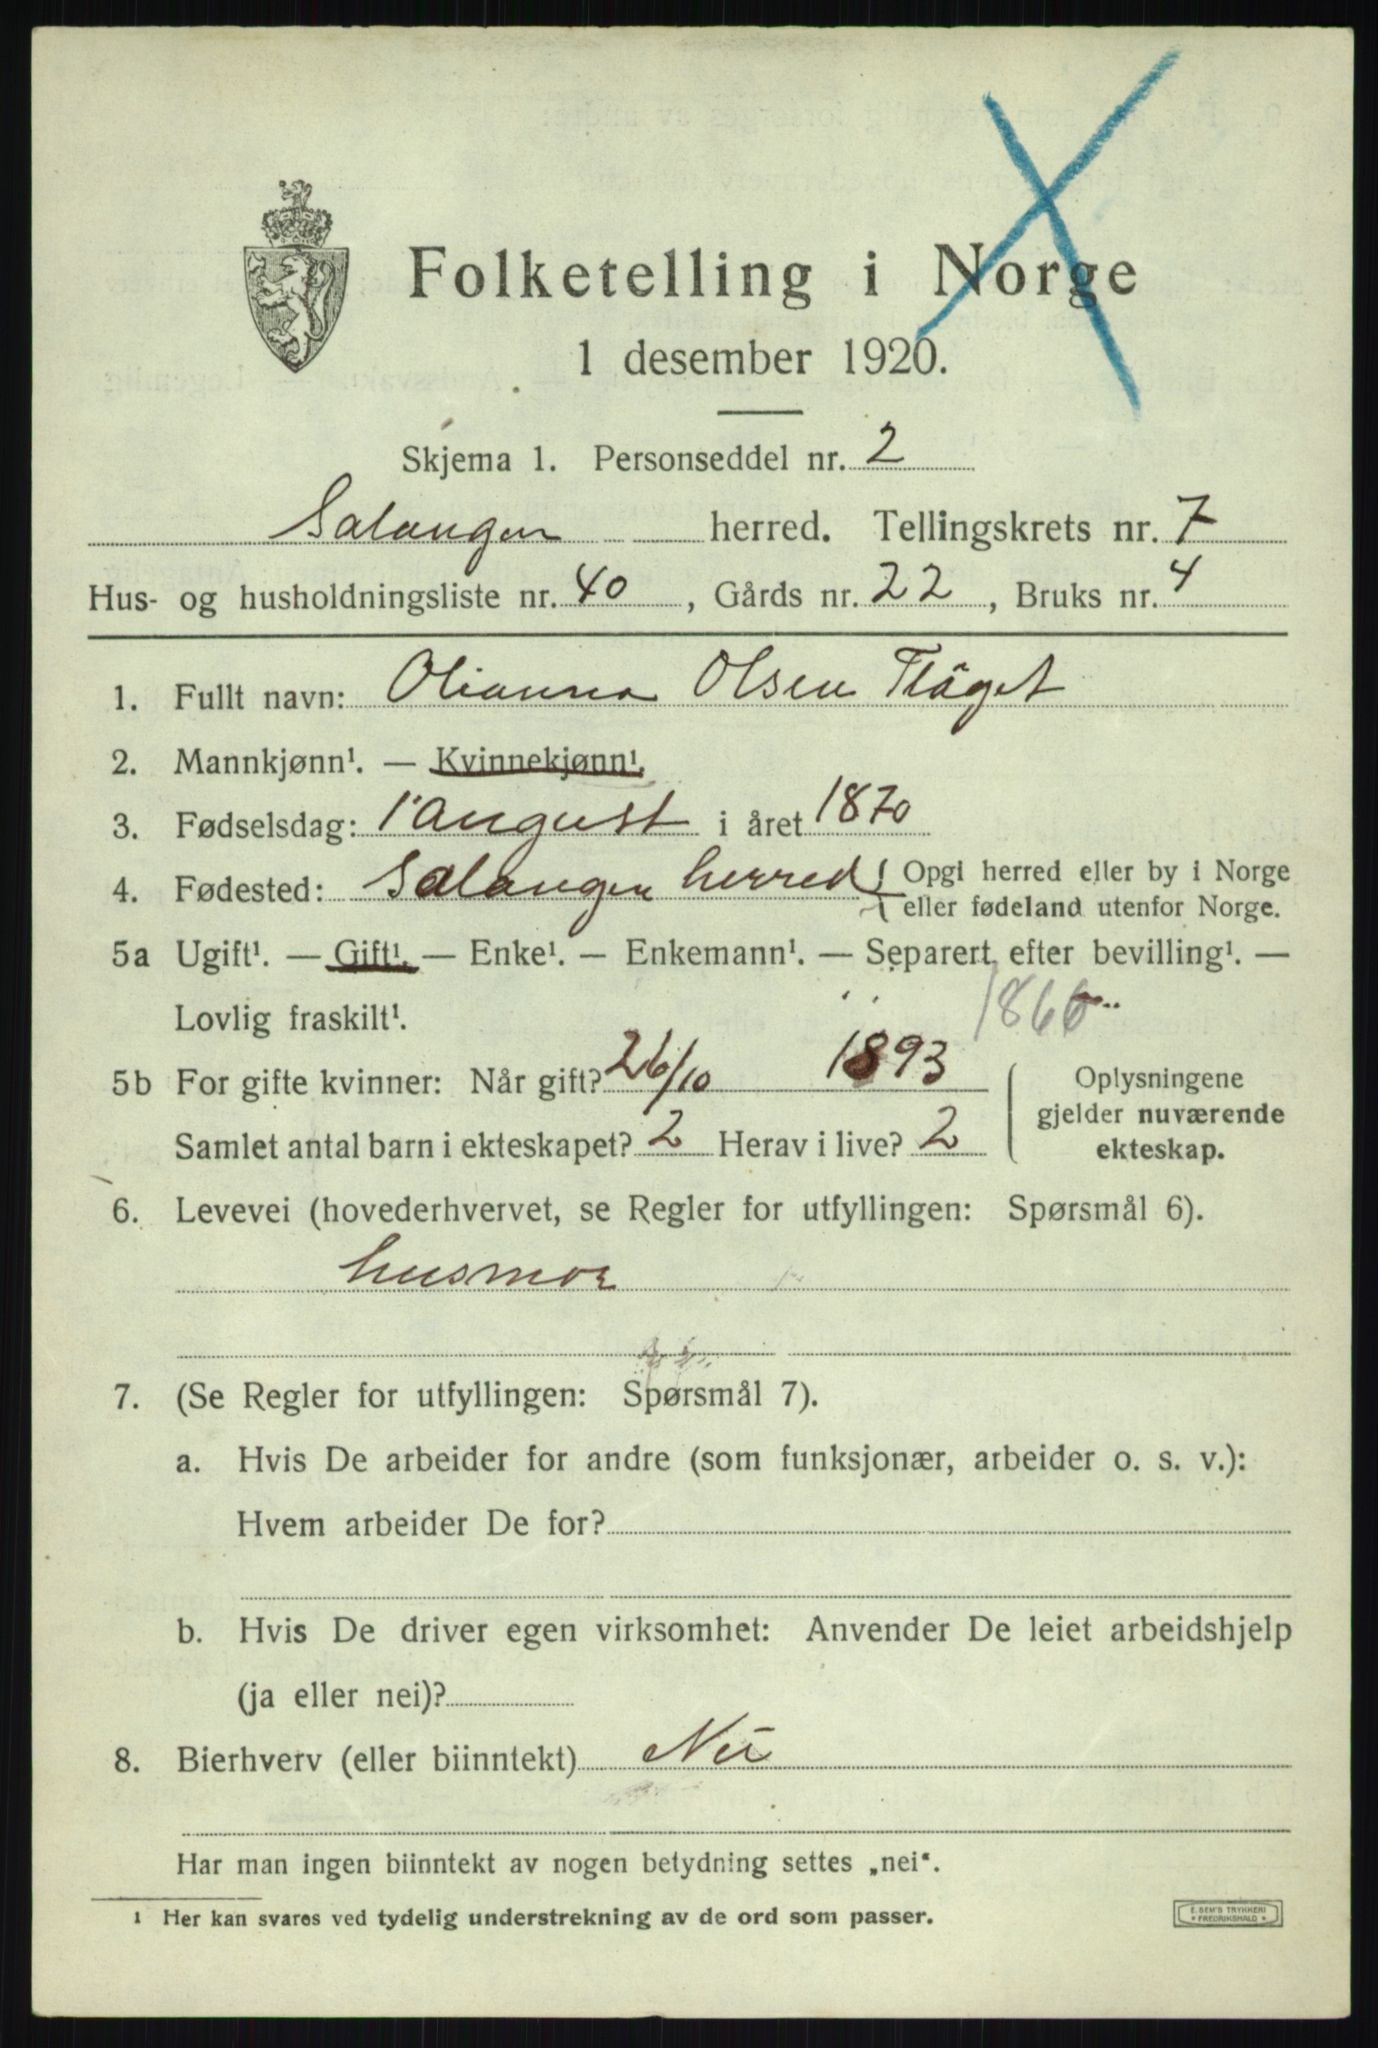 Folketelling i Norge
1 desember 1920.
Skjema 1. Personseddel nr. 2
Salangen herred. Tellingskrets nr. 7
Hus- og husholdningsliste nr. 40, Gårds nr. 22, Bruks nr. 4
1. Fullt navn: Olianna Olsen Flåget
2. Mannkjønn¹. — Kvinnekjønn¹.
3. Fødselsdag: 1 august i året 1870
4. Fødested: Salangen herred { Opgi herred eller by i Norge
eller fødeland utenfor Norge.
5a Ugift¹. — Gift¹. — Enke¹. — Enkemann¹. — Separert efter bevilling¹. —
Lovlig fraskilt¹.
1866
5b For gifte kvinner: Når gift? 26/10 1893
Samlet antal barn i ekteskapet? 2 Herav i live? 2
( Oplysningene
gjelder nuværende
ekteskap.
6. Levevei (hovederhvervet, se Regler for utfyllingen: Spørsmål 6).
husmor
7. (Se Regler for utfyllingen: Spørsmål 7).
a. Hvis De arbeider for andre (som funksjonær, arbeider o. s. v.):
Hvem arbeider De for?
b. Hvis De driver egen virksomhet: Anvender De leiet arbeidshjelp
(ja eller nei)?
8. Bierhverv (eller biinntekt) Nei
Har man ingen biinntekt av nogen betydning settes „nei“.
¹ Her kan svares ved tydelig understrekning av de ord som passer.
E. SEM'S TRYKKERI
* FREDRIKSHALD *